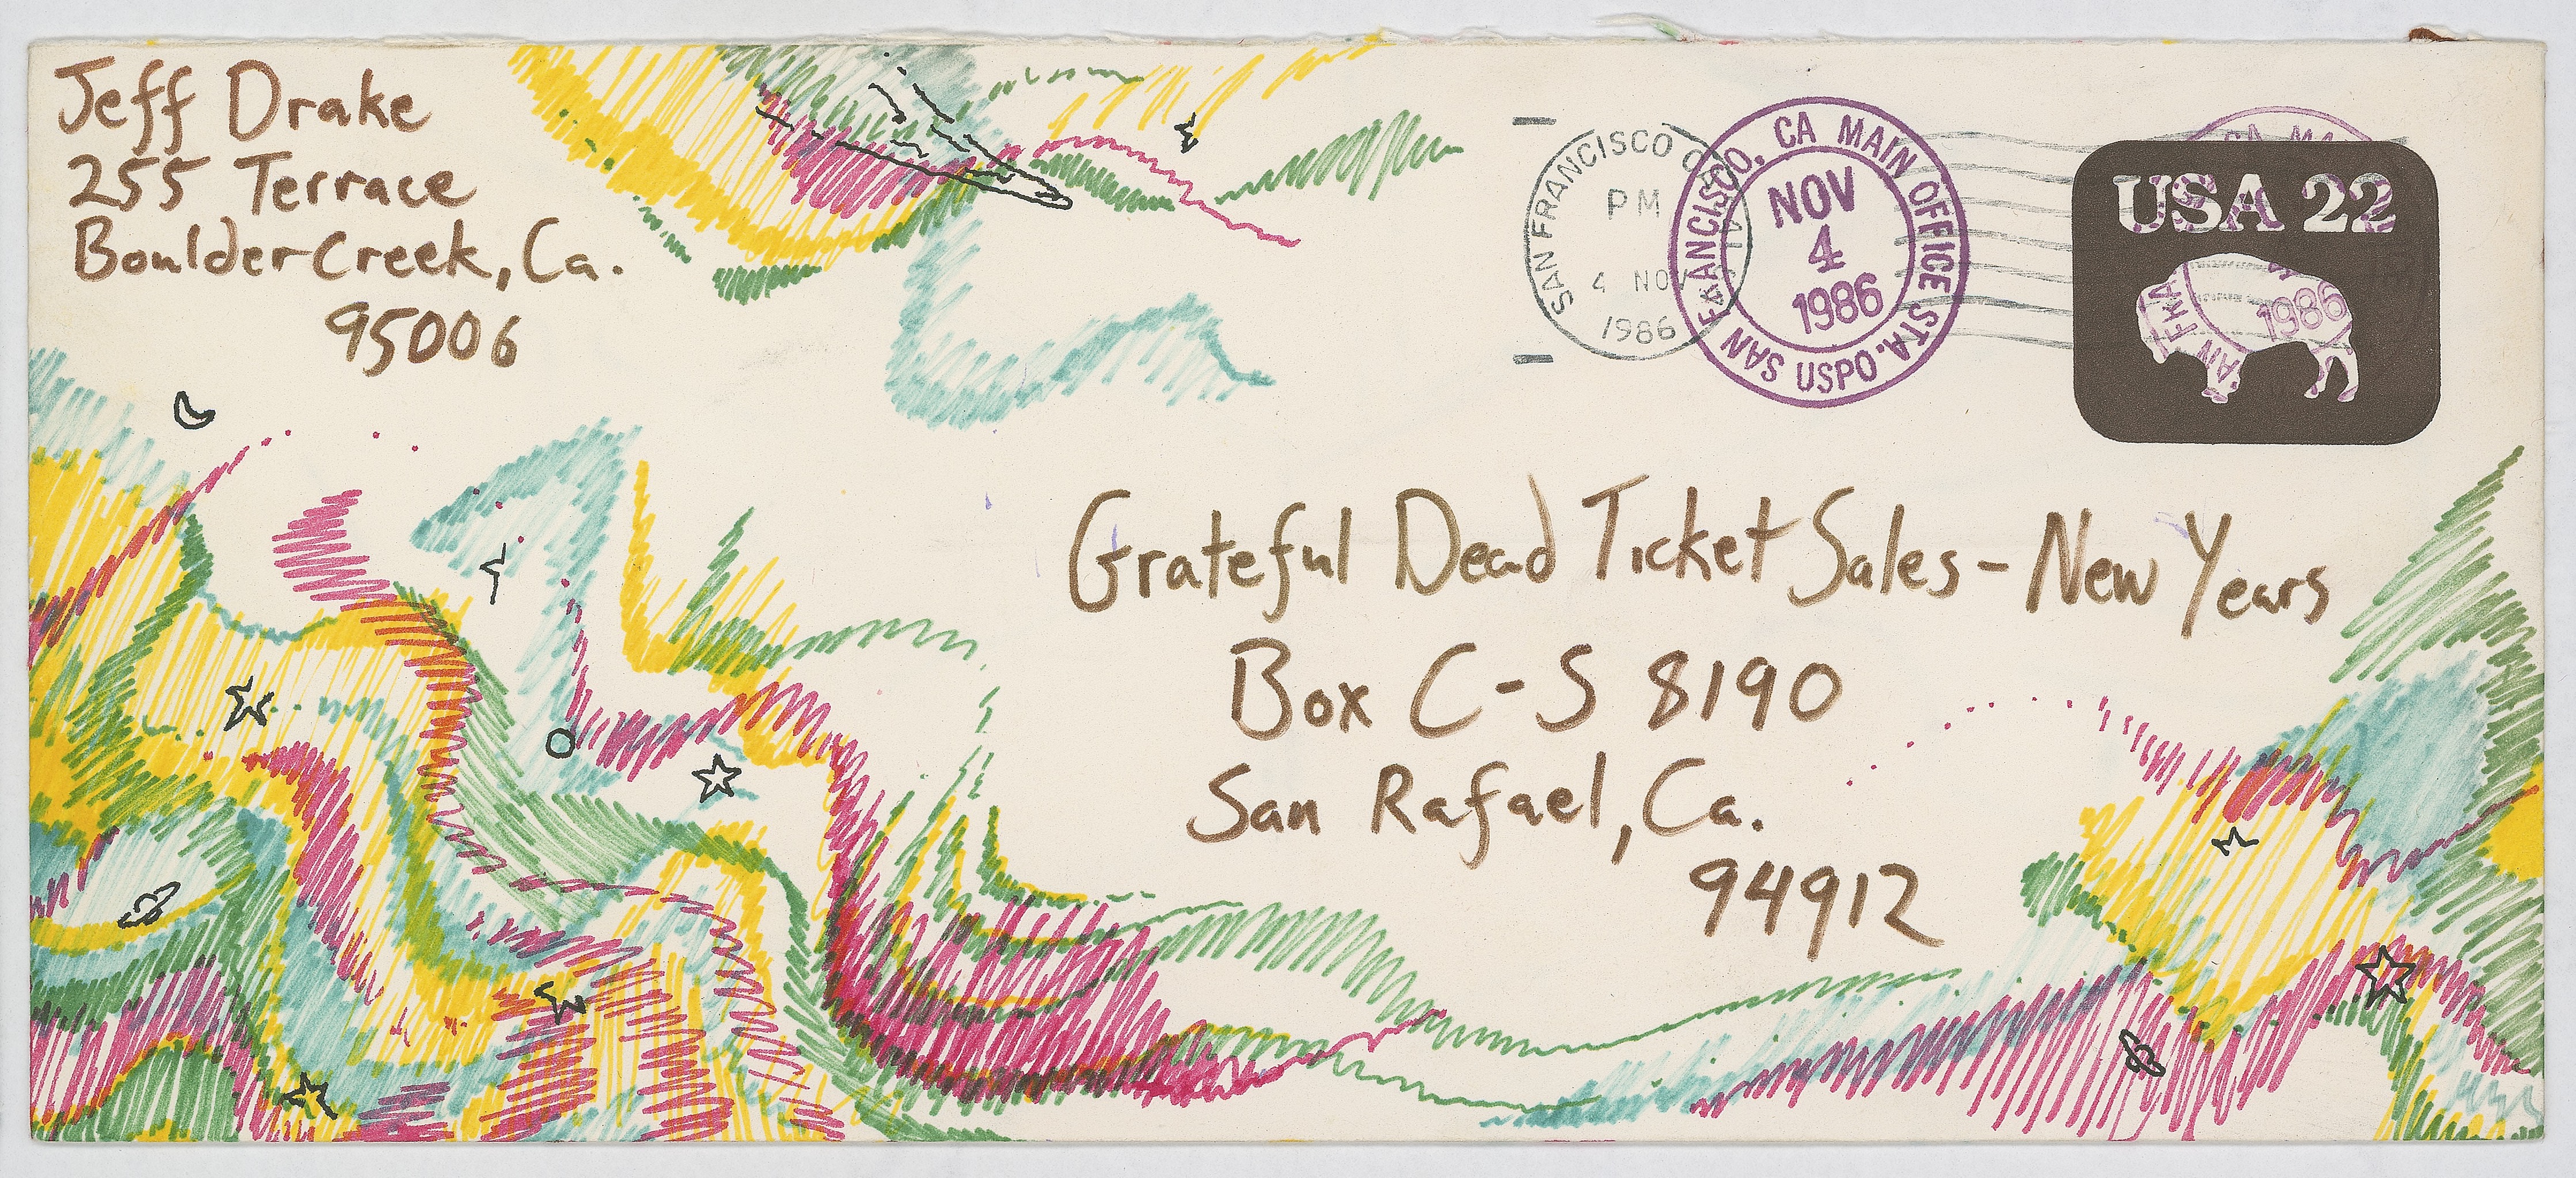 Jeff Drake
255 Terrace
Boulder Creek, Ca.
95006
SAN FRANCISCO
PM
4 NOV
1986
SAN FRANCISCO, CA MAIN OFFICE STA. USPO
NOV
4
1986
CA MA
USA 22
1986
Grateful Dead Ticket Sales - New Years
Box C-S 8190
San Rafael, Ca.
94912